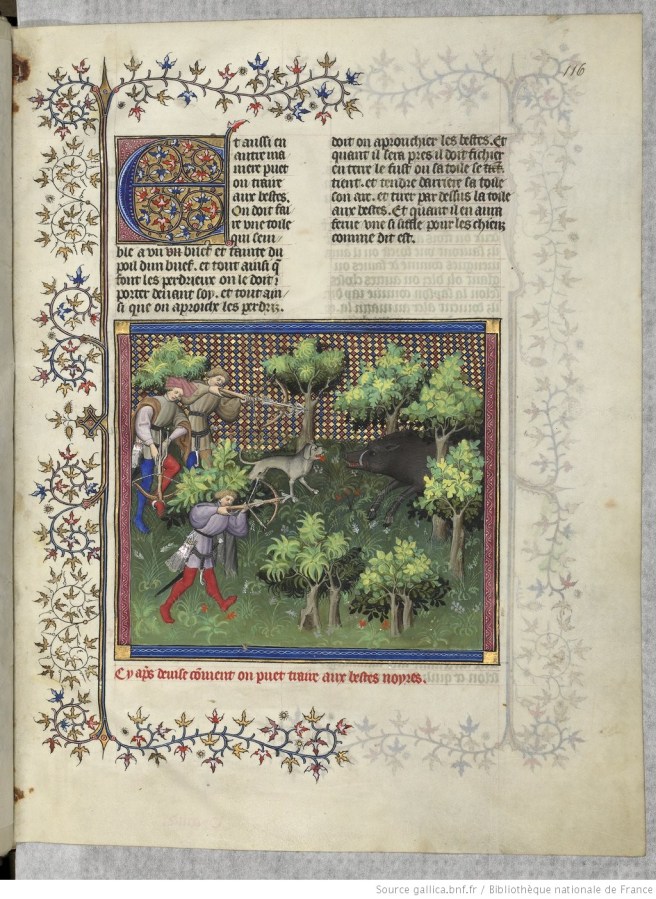 116
Et aussi en
autre ma
niere puet
on traire
aux bestes.
On doit fai
re vne toile
qui sem
ble a vn buef et tainte du
poil dun buef. et tout ainsi q̄
font les perdrieux on le doit
porter deuant soy. et tout ain
si que on aproiche les perdriz.
doit on aprouchier les bestes. Et
quant il sera pres il doit fichier
en terre le fust ou sa toile se
tient. et tendre darriere sa toile
son arc. et tirer par dessus la toile
aux bestes. Et quant il en aura
ferue vne si siffle pour les chiens
comme dit est.
Cy ap̄s deuise cōment on puet traire aux bestes noyres.
Source gallica.bnf.fr / Bibliothèque nationale de France